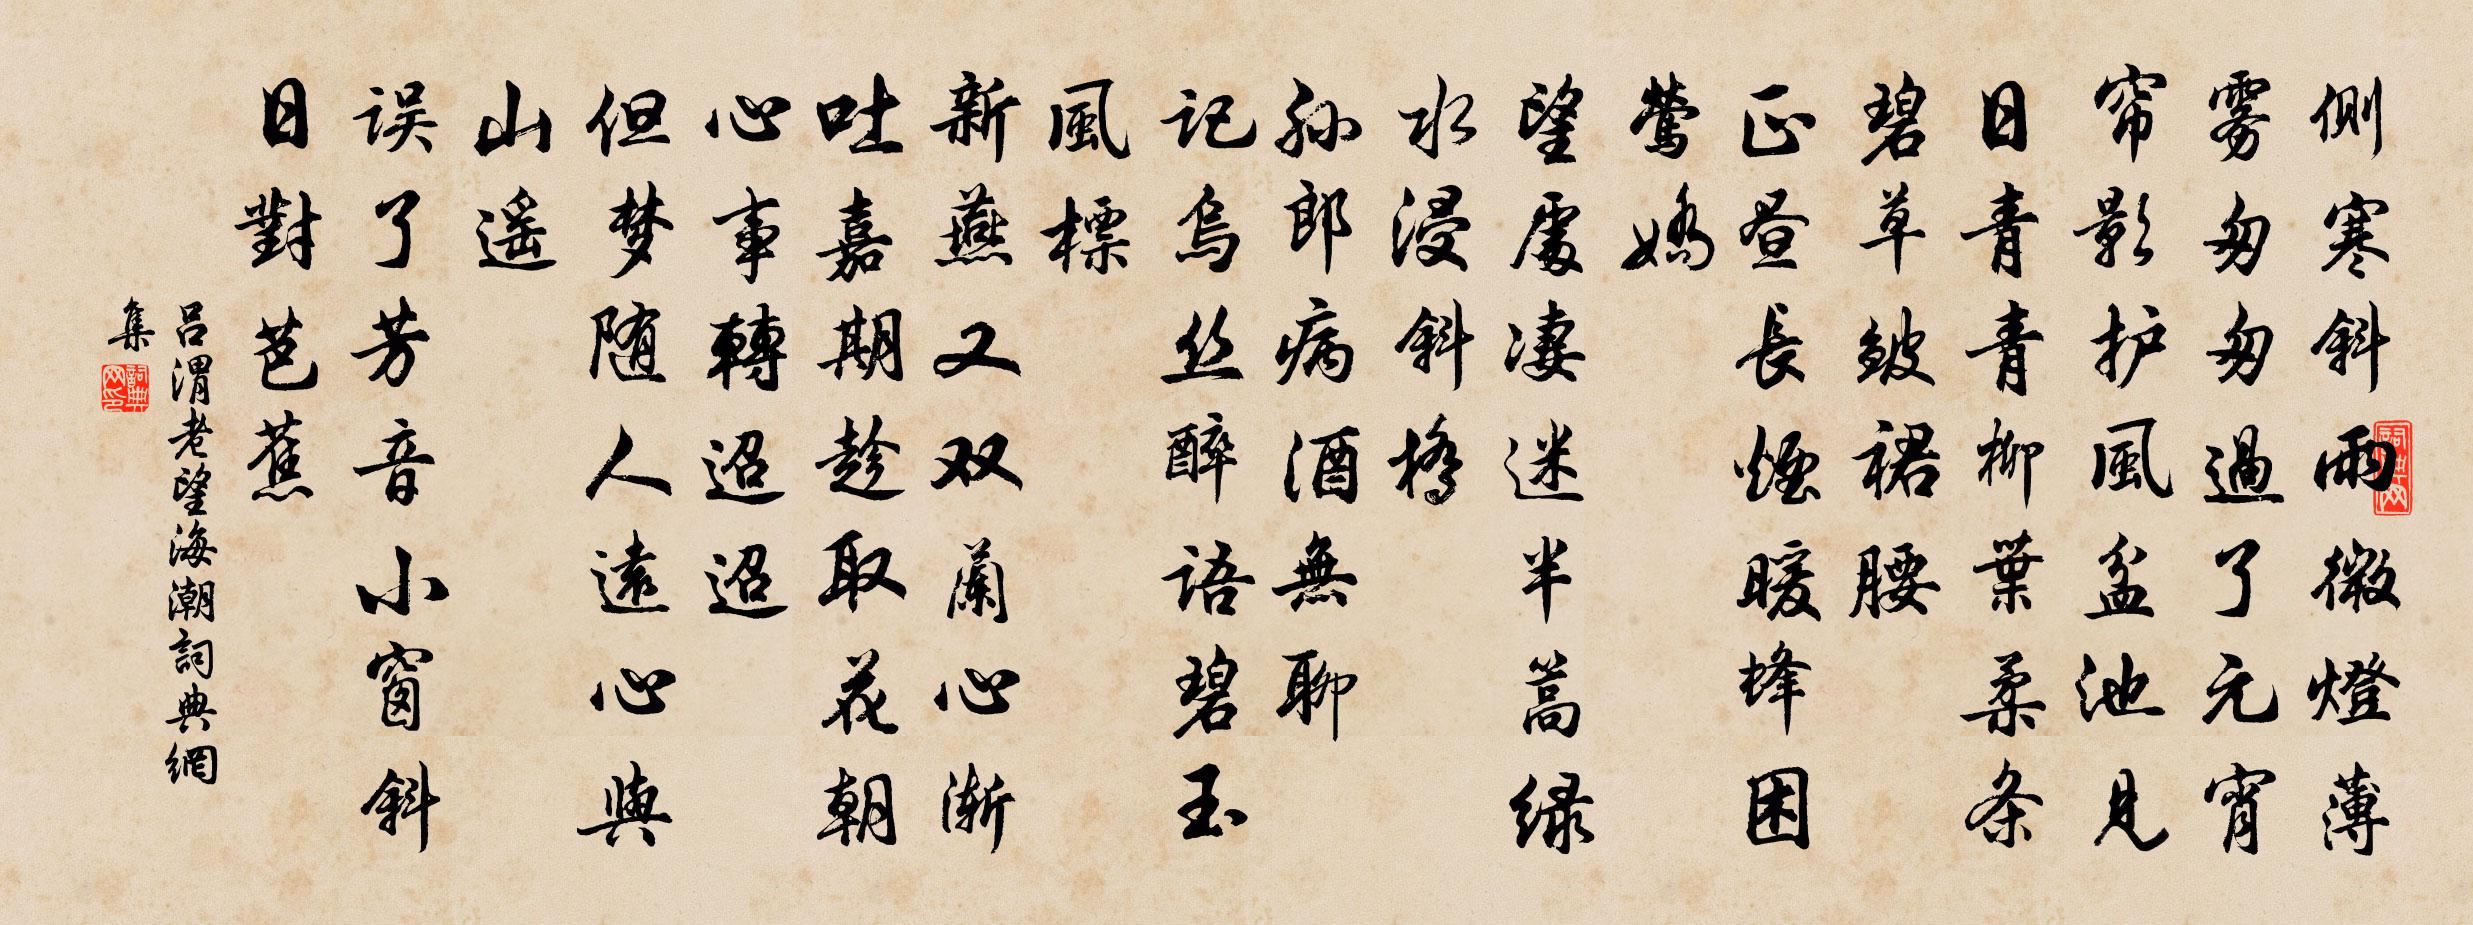 側寒斜雨微燈薄
雾匆匆過了元宵
帘影护風盆池見
日青青柳葉柔条
碧草皴裙腰
正昼長煙暖蜂困
莺嬌
望處凄迷半篙绿
水浸斜橋
孙郎病酒無聊
记烏丝醉語碧玉
風標
新燕又双蘭心渐
吐嘉期趁取花朝
心事轉迢迢
但梦随人遠心與
山遥
误了芳音小窗斜
日對芭蕉
吕渭老望海潮詞典網
集